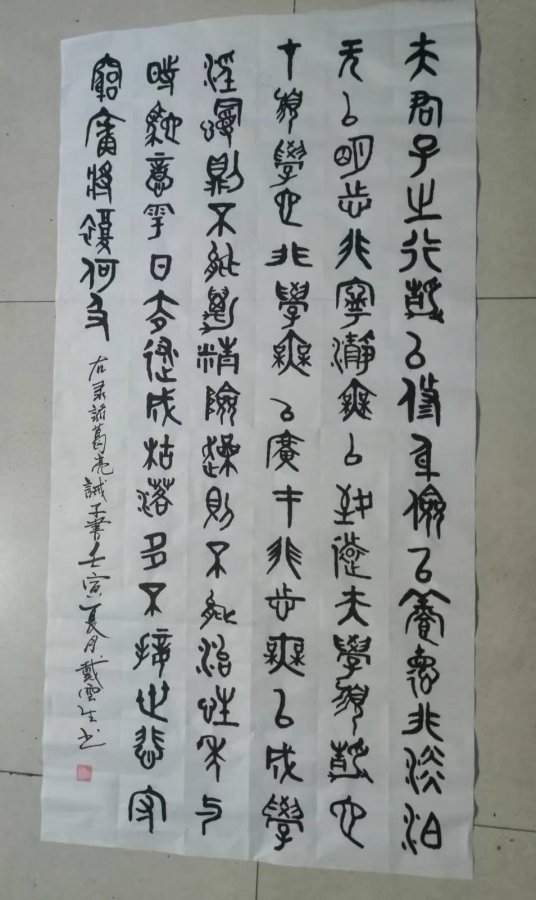 夫君子之行靜以修身儉以養悳非淡泊
无以明志非寧瀞無以致遠夫學須靜也
才須學也非學無以廣才非志無以成學
淫慢則不能勵精險躁則不能治性年与
時馳意㒜日去遂成枯落多不接世悲守
窮廬將復何及
右录諸葛亮誡子書壬寅夏月戴雲生书